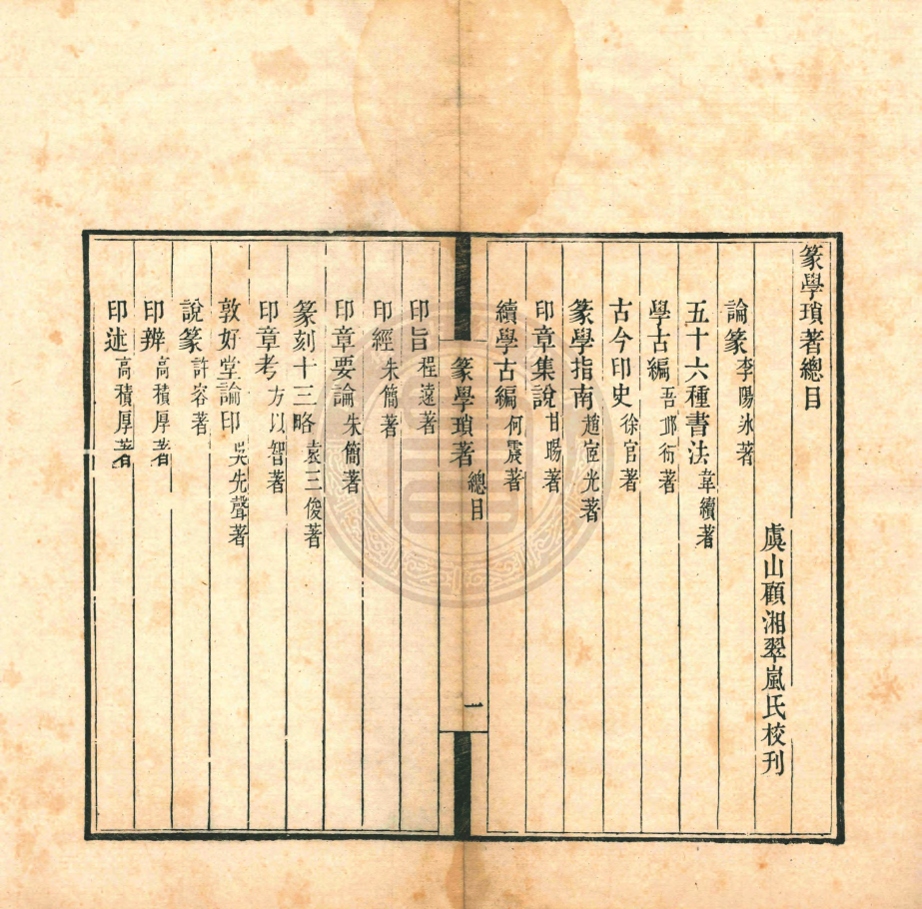 篆學瑣著總目
虞山顧湘翠嵐氏校刊
論篆李陽冰著
五十六種書法韋續著
學古編吾邱衍著
古今印史徐官著
篆學指南趙宧光著
印章集說甘暘著
續學古編何震著
篆學瑣著 總目 一
印旨程遠著
印經朱簡著
印章要論朱簡著
篆刻十三略袁三俊著
印章考方以智著
敦好堂論印吳先聲著
說篆許容著
印辨高積厚著
印述高積厚著